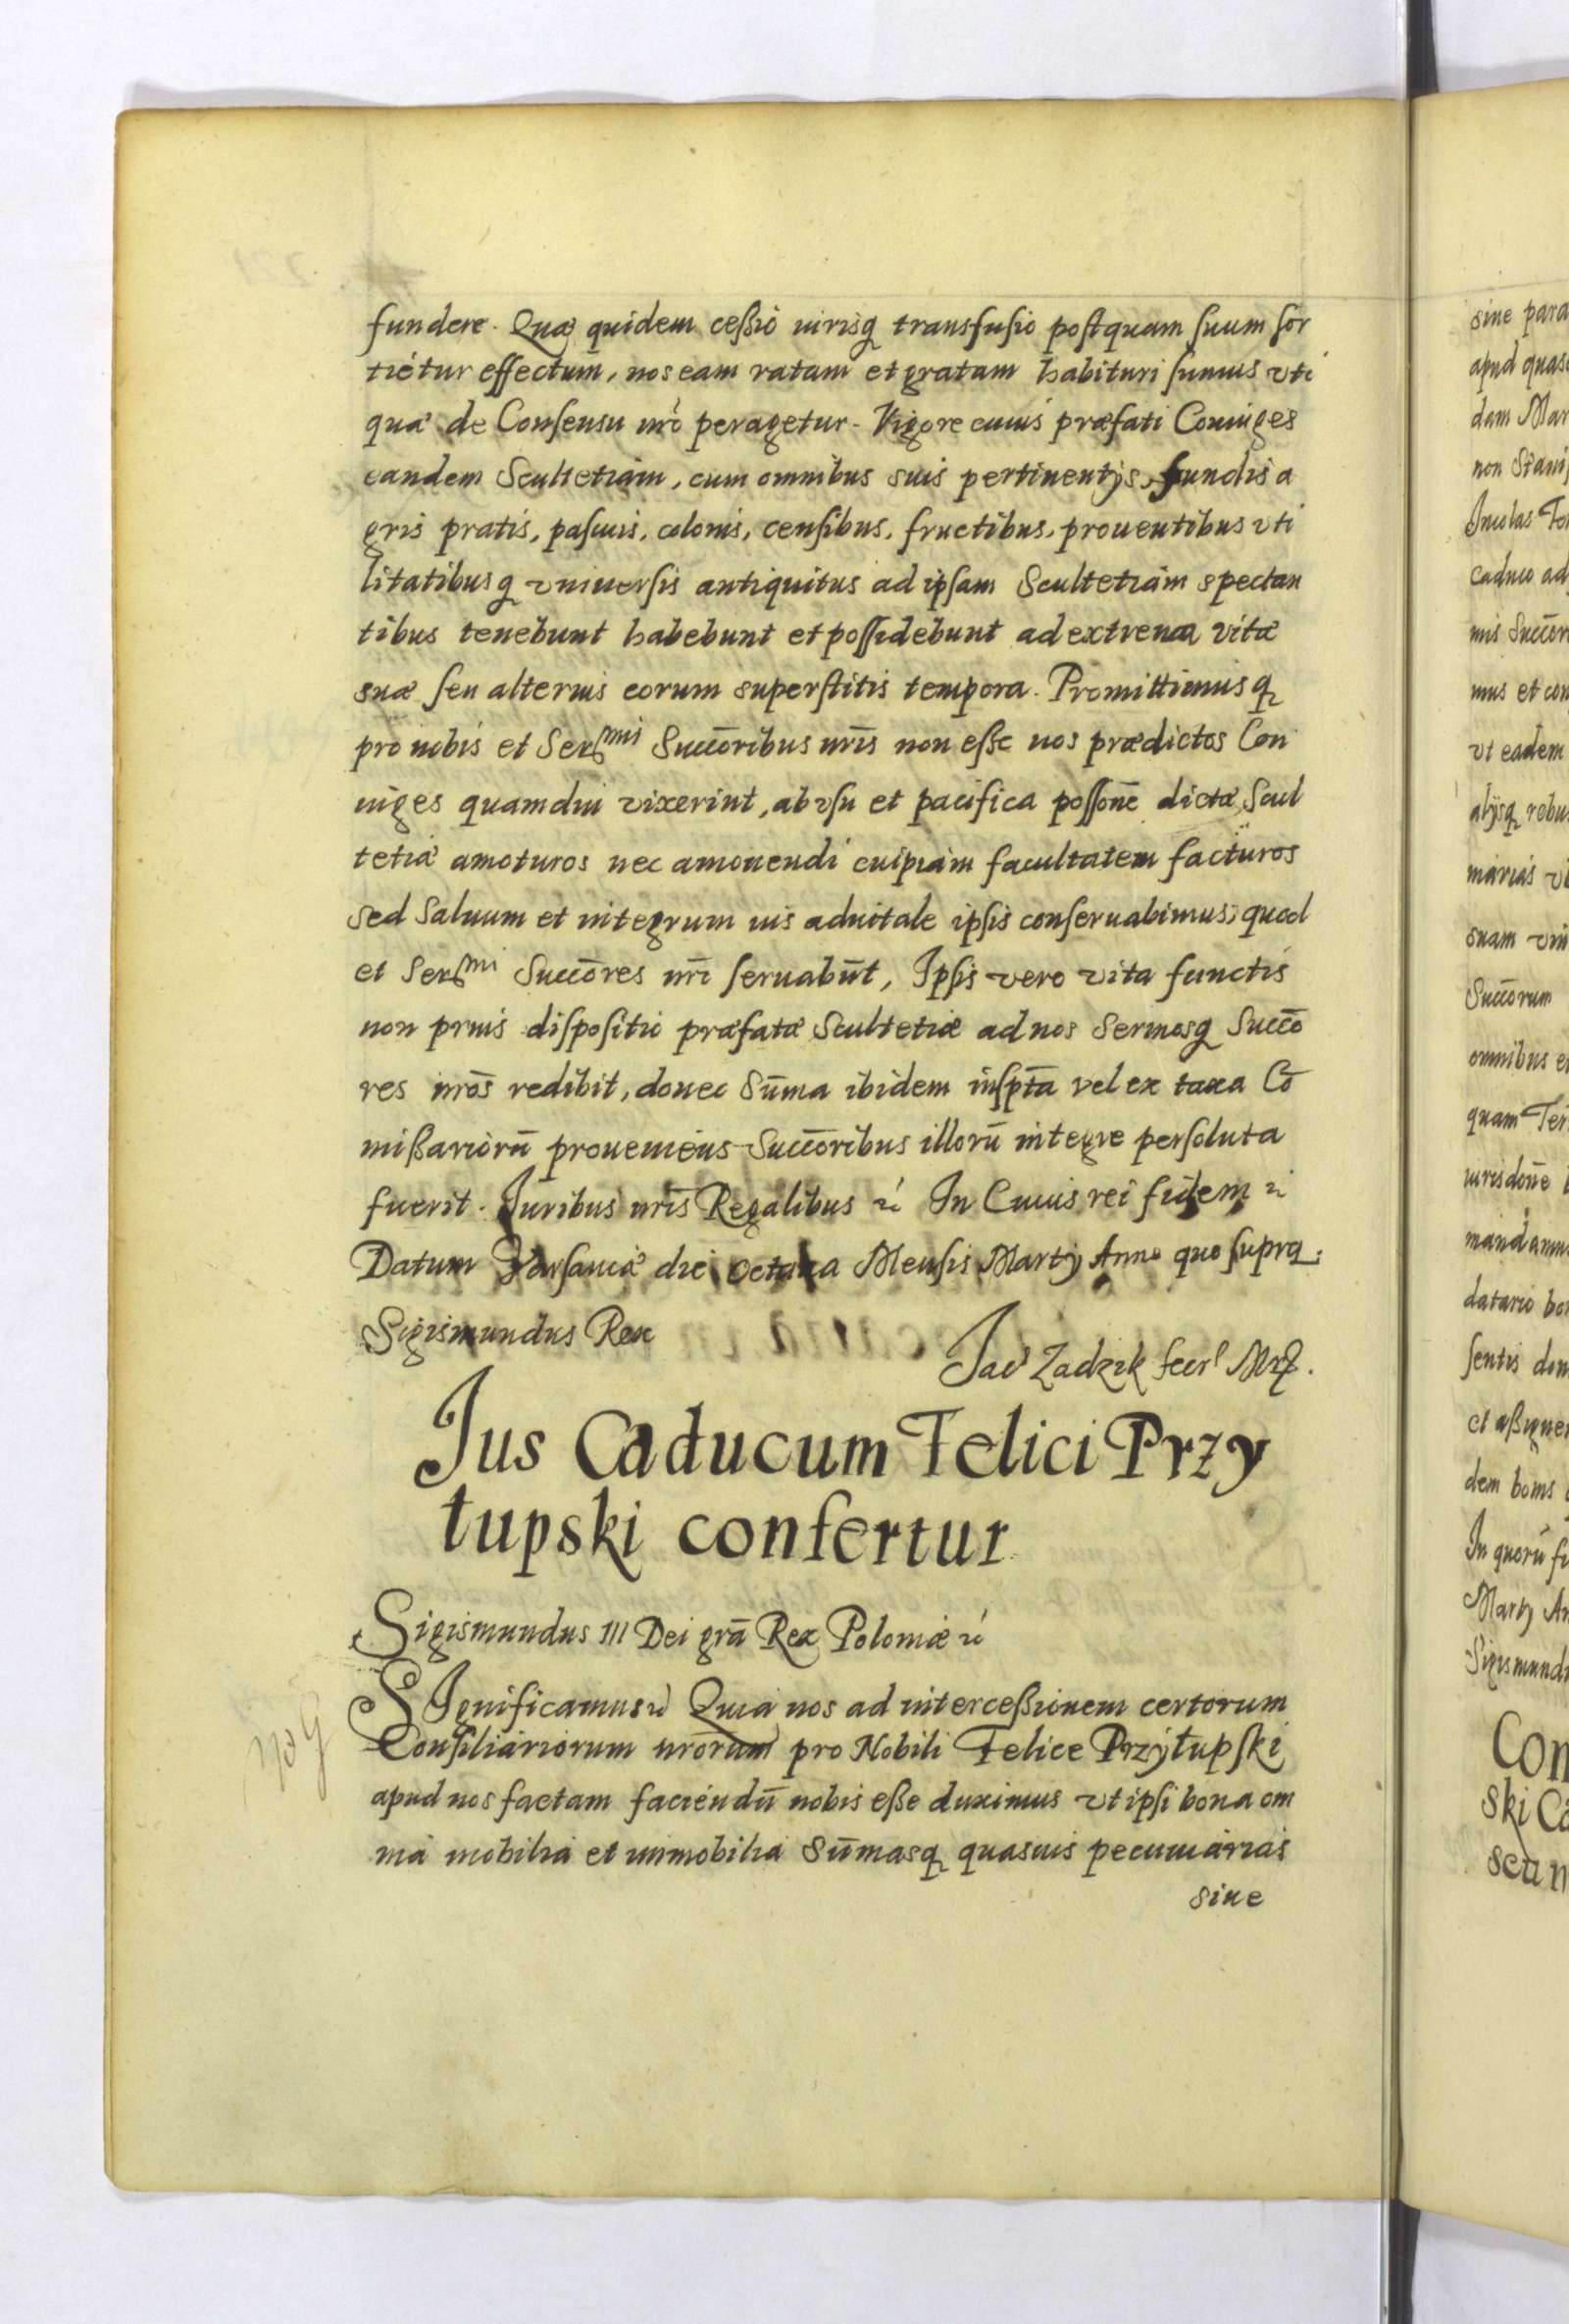 fundere. Quæ quidem ceßio iurisq transfusio postquam suum sor
tiétur effectum, nos eam ratam et gratam habituri sumus vti
quæ de Consensu nr̄o peragetur. Vigore cuius præfati Coniuges
eandem Scultetiam, cum omnibus suis pertinentijs, fundis a
gris pratis, pascuis, colonis, censibus, fructibus, prouentibus vti
litatibusq vniuersis antiquitus ad ipsam Scultetiam spectan
tibus tenebunt habebunt et possidebunt ad extrema vitæ
suæ seu alterius eorum superstitis tempora. Promittimusq
pro nobis et Ser̄mis Succōribus nr̄is non esse nos prædictos Con
iuges quamdiu vixerint, ab vsu et pacifica possōne dictæ Scul
tetiæ amoturos nec amouendi cuipiam facultatem facturos
sed Saluum et integrum ius aduitale ipsis conseruabimus, quod
et Ser̄mi Succōres nr̄i seruabūt, Ipsis vero vita functis
non prius dispositio præfatæ Scultetiæ ad nos Sermosq Succō
res nr̄os redibit, donec Sūma ibidem inspt̄a vel ex taxa Cō
mißariorū proueniens Succōribus illorū integre persoluta
fuerit. Juribus nr̄is Regalibus etc In Cuius rei fidem etc
Datum Varsauiæ die octaua Mensis Martij Anno quo supra.
Sigismundus Rex
Jac Zadzik secr Mrq.
Jus Caducum Felici Przy
łupski confertur
Sigismundus III Dei grā Rex Poloniæ etc
SIgnificamus etc Quia nos ad interceßionem certorum
Consiliariorum nrōrum pro Nobili Felice Przyłupski
apud nos factam faciendū nobis eße duximus vt ipsi bona om
nia mobilia et immobilia Sūmasq quasuis pecuniarias
siue